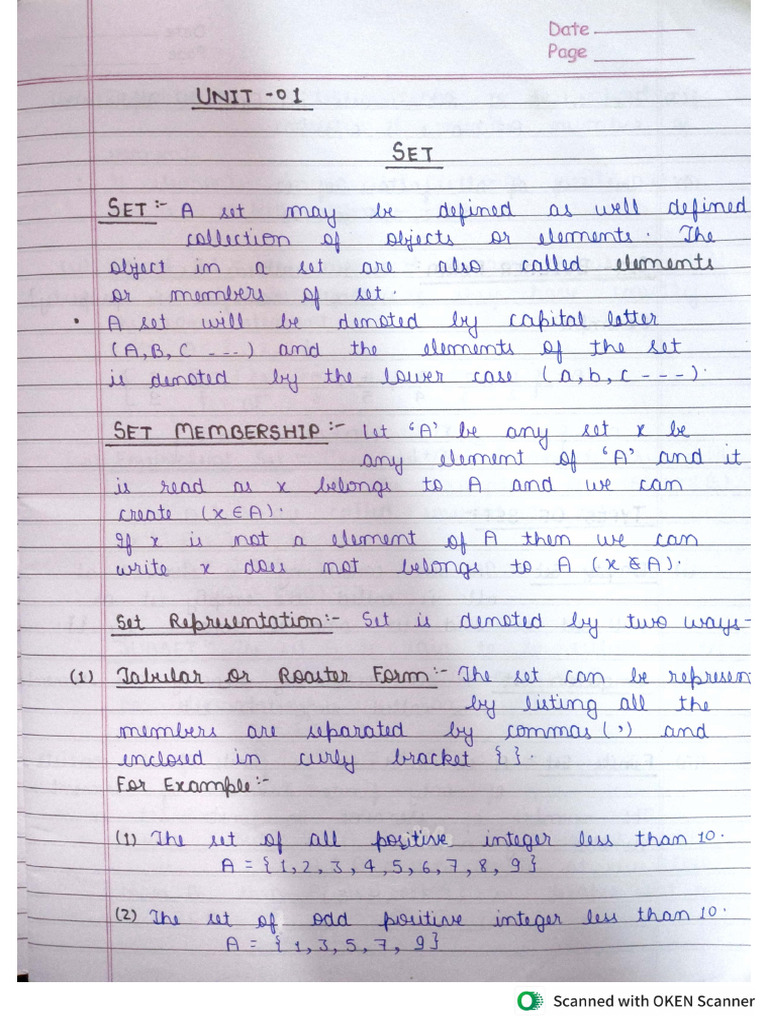 Date
Page
UNIT -01
SET
SET :- A set may be defined as well defined
collection of objects or elements. The
object in a set are also called elements
or members of set.
• A set will be denoted by capital letter
(A, B, C ---) and the elements of the set
is denoted by the lower case (a, b, c ---).
SET MEMBERSHIP :- Let 'A' be any set x be
any element of 'A' and it
is read as x belongs to A and we can
create (x ∈ A).
If x is not a element of A then we can
write x does not belongs to A (x ∉ A).
Set Representation :- Set is denoted by two ways-
(1) Tabular or Roaster Form :- The set can be represen
by listing all the
members are separated by commas (,) and
enclosed in curly bracket { }.
For Example :-
(1) The set of all positive integer less than 10.
A = {1, 2, 3, 4, 5, 6, 7, 8, 9}
(2) The set of odd positive integer less than 10.
A = {1, 3, 5, 7, 9}
Scanned with OKEN Scanner